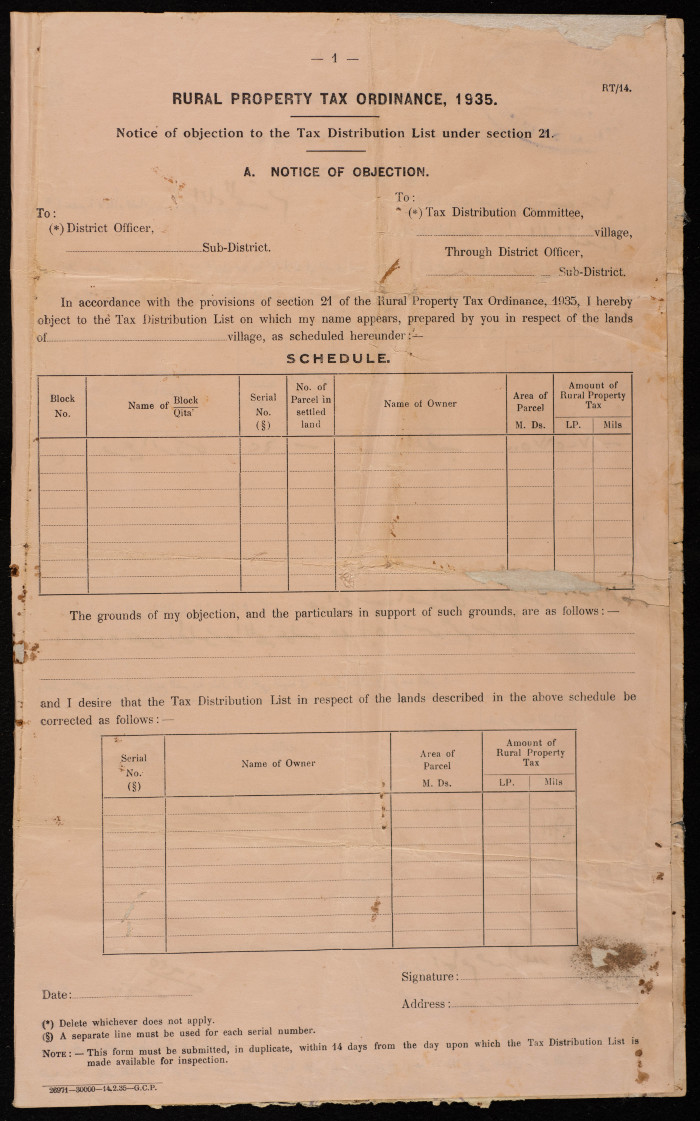 — 1 —
RT/14.
RURAL PROPERTY TAX ORDINANCE, 1935.
Notice of objection to the Tax Distribution List under section 21.
A. NOTICE OF OBJECTION.
To:
(*) District Officer,
Sub-District.
To:
(*) Tax Distribution Committee,
village,
Through District Officer,
Sub-District.
In accordance with the provisions of section 21 of the Rural Property Tax Ordinance, 1935, I hereby
object to the Tax Distribution List on which my name appears, prepared by you in respect of the lands
of village, as scheduled hereunder:—
SCHEDULE.
Block No.
Name of Block/Qita'
Serial No. (§)
No. of Parcel in settled land
Name of Owner
Area of Parcel
M. Ds.
Amount of Rural Property Tax
LP.
Mils
The grounds of my objection, and the particulars in support of such grounds, are as follows:—
and I desire that the Tax Distribution List in respect of the lands described in the above schedule be
corrected as follows:—
Serial No. (§)
Name of Owner
Area of Parcel
M. Ds.
Amount of Rural Property Tax
LP.
Mils
Signature:
Date:
Address:
(*) Delete whichever does not apply.
(§) A separate line must be used for each serial number.
NOTE:— This form must be submitted, in duplicate, within 14 days from the day upon which the Tax Distribution List is
made available for inspection.
26971—30000—14.2.35—G.C.P.